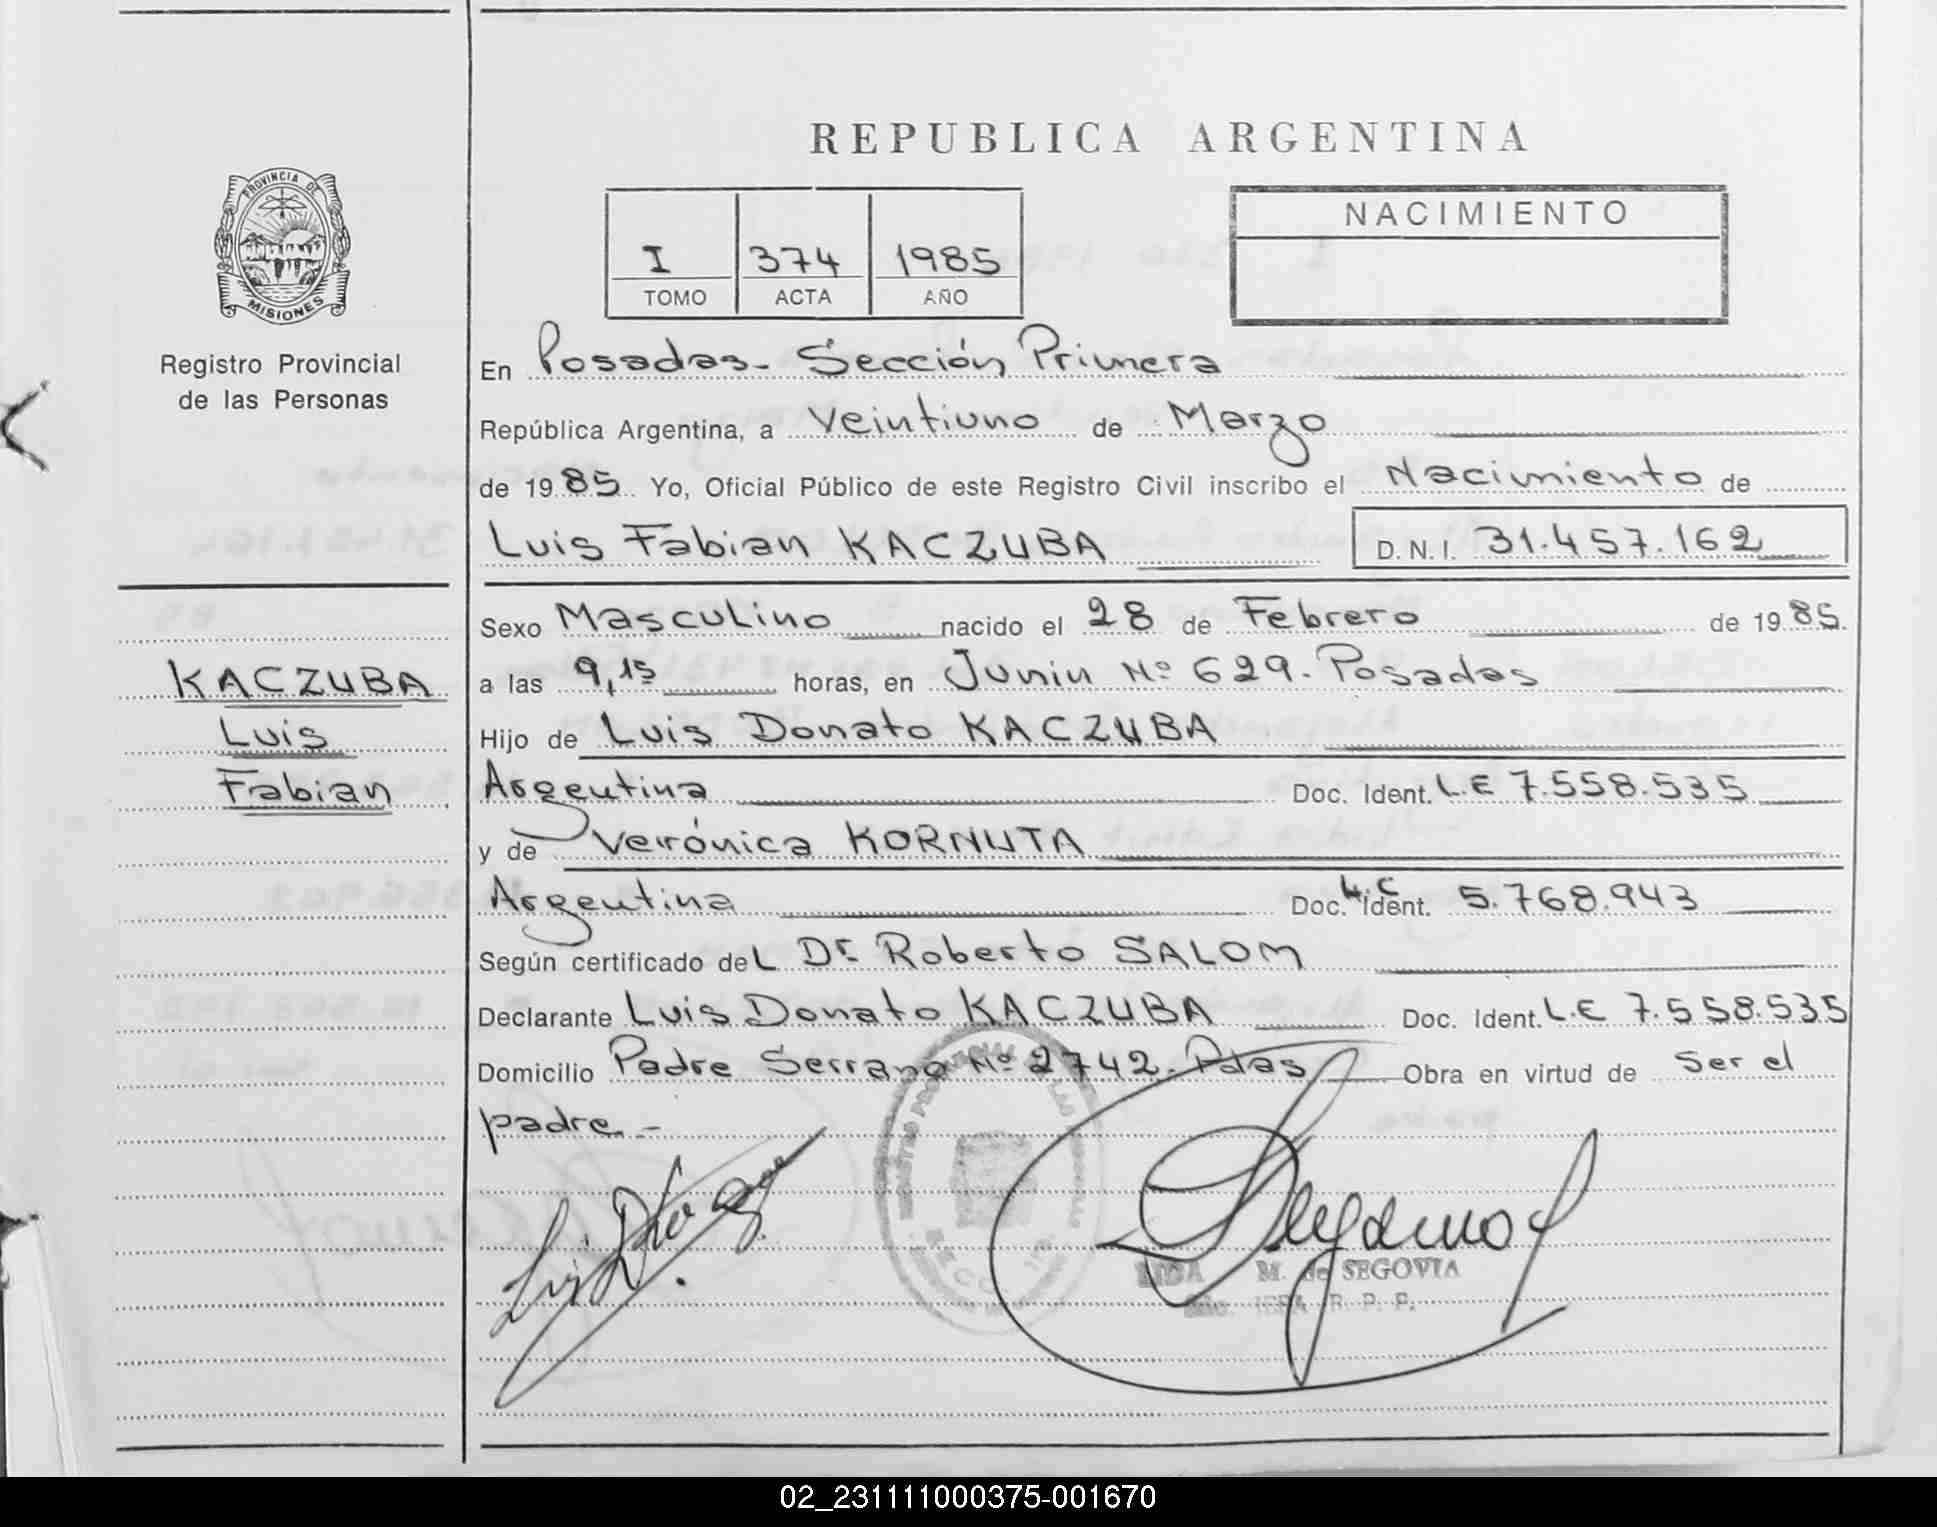 REPUBLICA ARGENTINA
PROVINCIA DE
MISIONES
Registro Provincial
de las Personas
I 374 1985
TOMO ACTA AÑO
NACIMIENTO
En Posadas - Sección Primera
República Argentina, a Veintiuno de Marzo
de 1985. Yo, Oficial Público de este Registro Civil inscribo el Nacimiento de
Luis Fabian KACZUBA D.N.I. 31.457.162
KACZUBA
Luis
Fabian
Sexo Masculino nacido el 28 de Febrero de 1985.
a las 9,15 horas, en Junin Nº 629. Posadas
Hijo de Luis Donato KACZUBA
Argentina Doc. Ident. L.E 7.558.535
y de Verónica KORNUTA
Argentina Doc. Ident. L.C 5.768.943
Según certificado del Dr. Roberto SALOM
Declarante Luis Donato KACZUBA Doc. Ident. L.E 7.558.535
Domicilio Padre Serrano Nº 2742. Pdas Obra en virtud de Ser el
padre.-
REGISTRO PROVINCIAL DE LAS PERSONAS
M. de SEGOVIA
R. P. P.
02_231111000375-001670